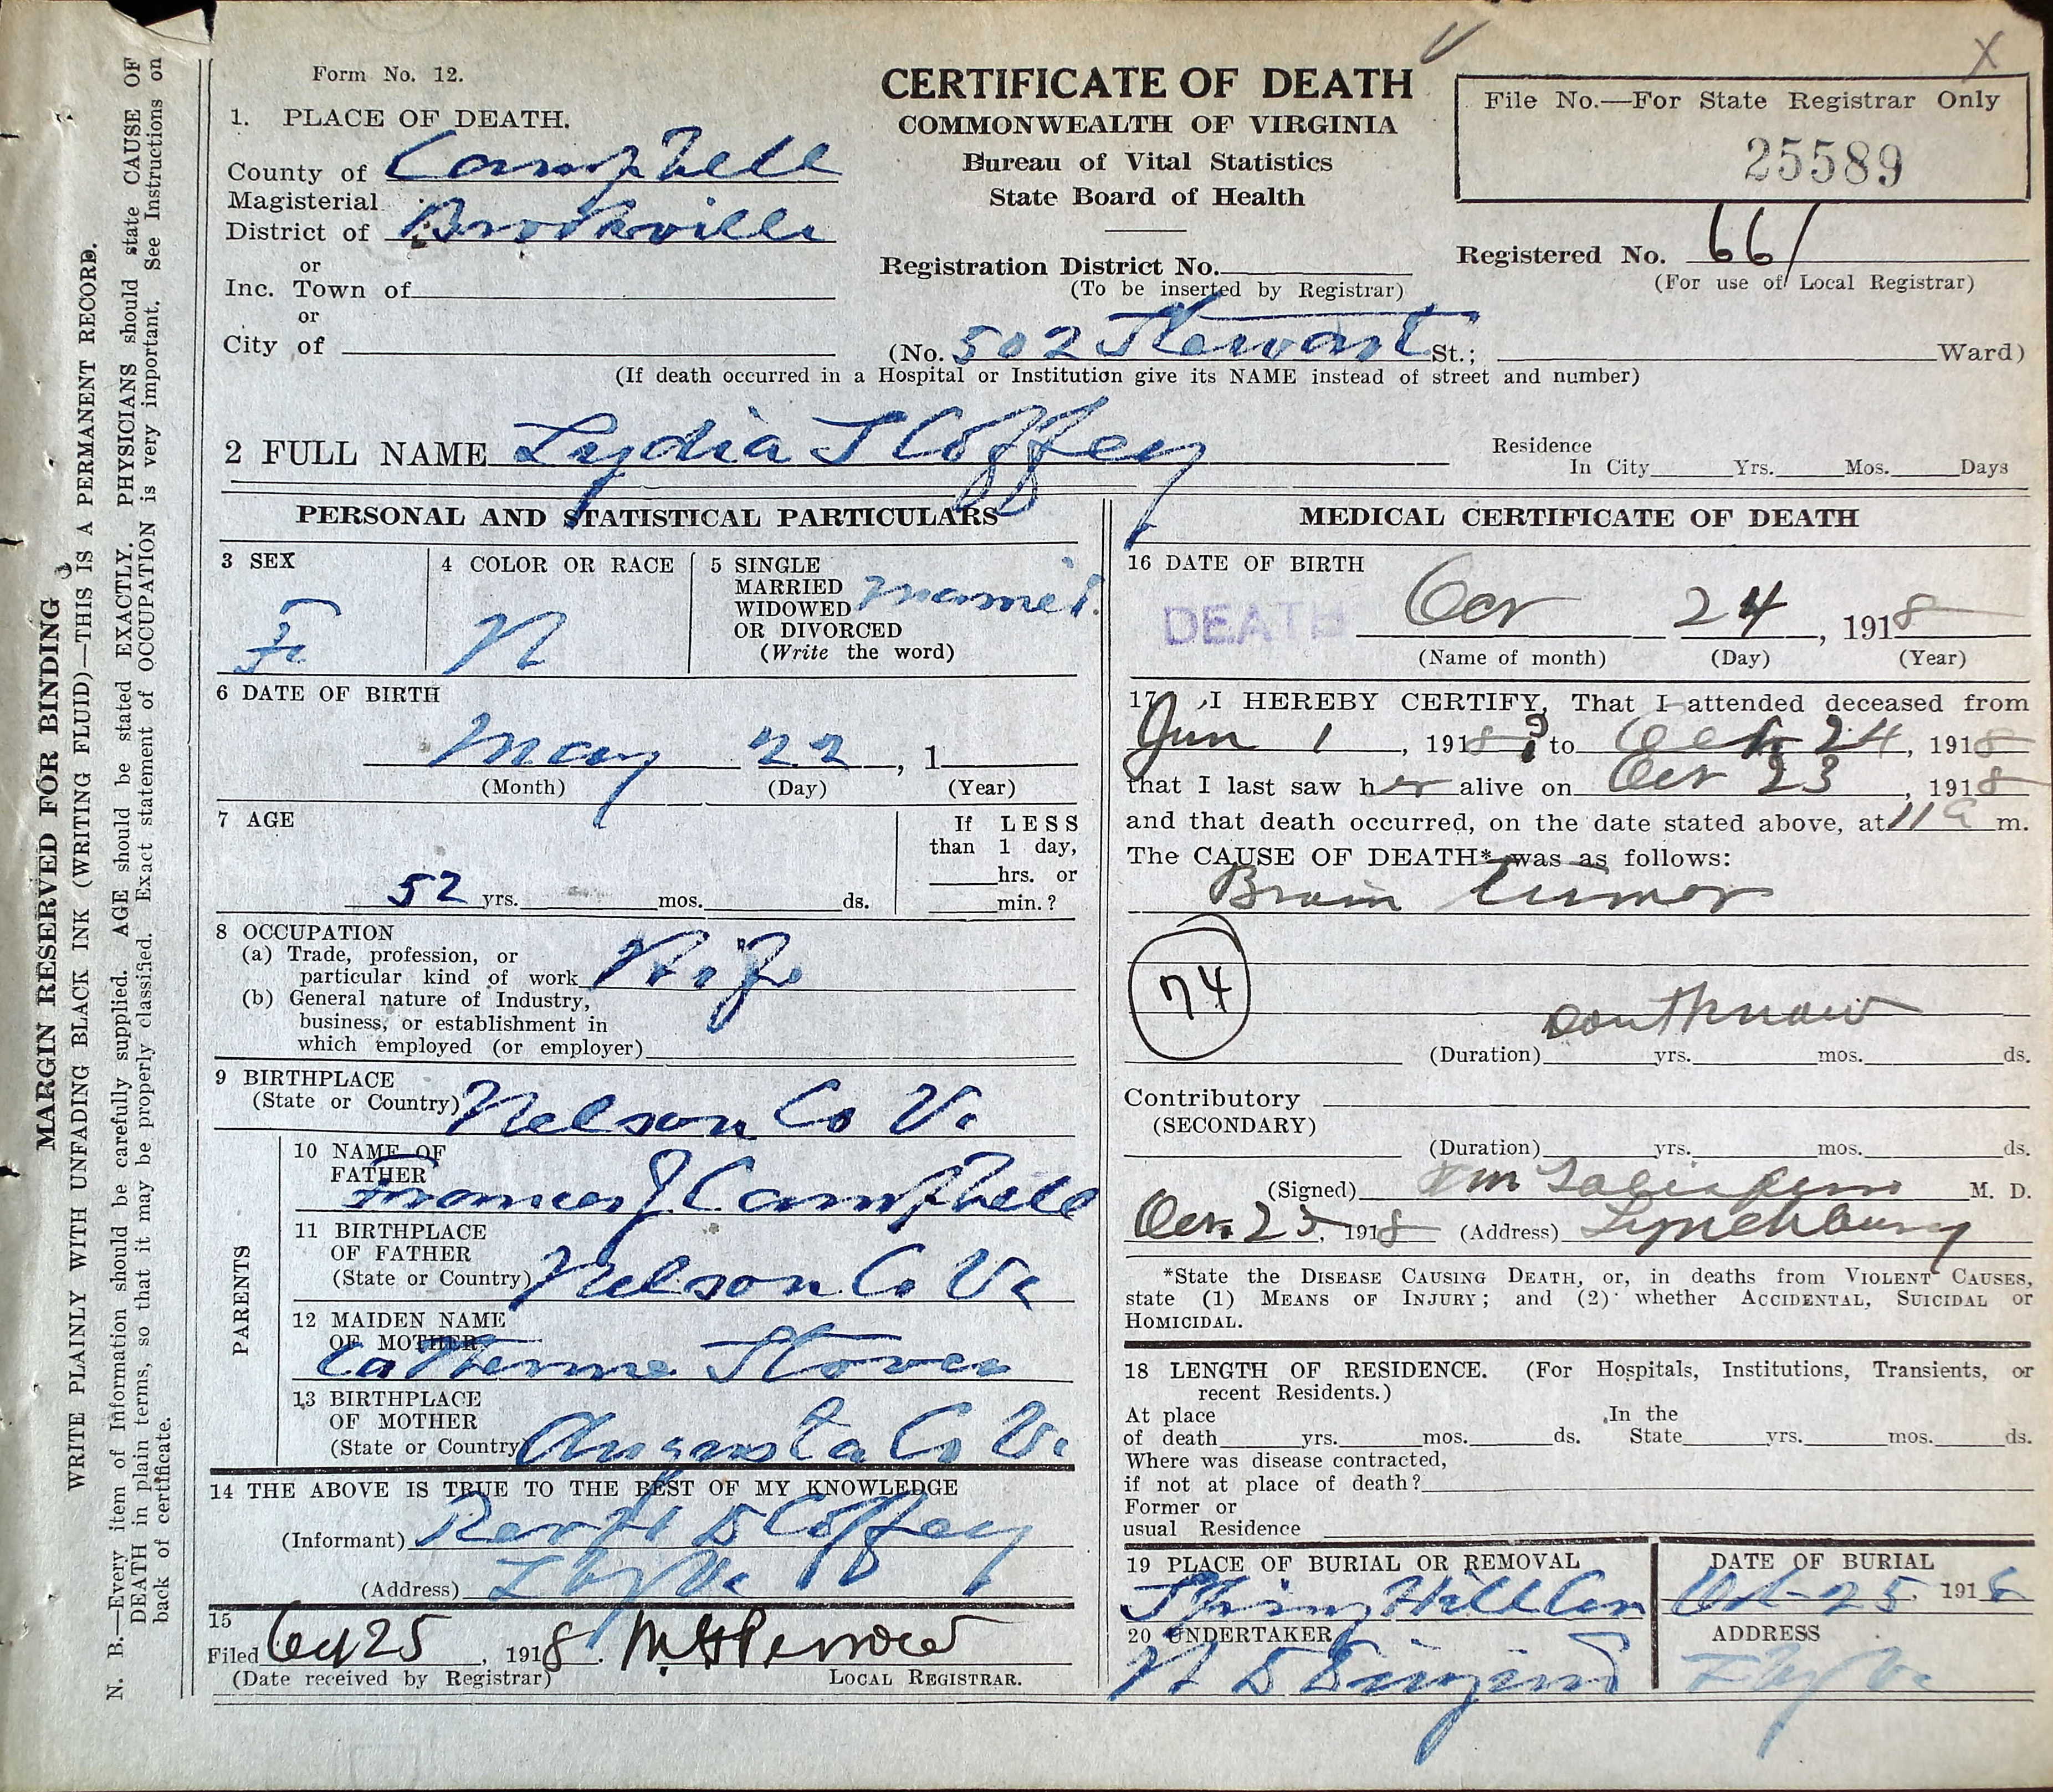 Form No. 12.
CERTIFICATE OF DEATH
COMMONWEALTH OF VIRGINIA
Bureau of Vital Statistics
State Board of Health
File No.—For State Registrar Only
25589
1. PLACE OF DEATH.
County of Campbell
Magisterial
District of Brookville
or
Inc. Town of
or
City of
Registration District No.
(To be inserted by Registrar)
Registered No. 661
(For use of Local Registrar)
(No. 502 Stewart St.; Ward)
(If death occurred in a Hospital or Institution give its NAME instead of street and number)
2 FULL NAME Lydia S Coffey
Residence
In City Yrs. Mos. Days
PERSONAL AND STATISTICAL PARTICULARS
3 SEX
F
4 COLOR OR RACE
W
5 SINGLE
MARRIED
WIDOWED
OR DIVORCED
(Write the word)
Married
6 DATE OF BIRTH
May 22, 1
(Month) (Day) (Year)
7 AGE
52 yrs. mos. ds.
If LESS
than 1 day,
hrs. or
min.?
8 OCCUPATION
(a) Trade, profession, or
particular kind of work
(b) General nature of Industry,
business, or establishment in
which employed (or employer)
9 BIRTHPLACE
(State or Country) Nelson Co Va
PARENTS
10 NAME OF
FATHER
Frances J Campbell
11 BIRTHPLACE
OF FATHER
(State or Country) Nelson Co Va
12 MAIDEN NAME
OF MOTHER
Catherine
13 BIRTHPLACE
OF MOTHER
(State or Country) Augusta Co Va
14 THE ABOVE IS TRUE TO THE BEST OF MY KNOWLEDGE
(Informant) Coffey
(Address) Lbg Va
15
Filed Oct 25, 1918. M. H. Perrow
(Date received by Registrar) LOCAL REGISTRAR.
MEDICAL CERTIFICATE OF DEATH
16 DATE OF BIRTH
DEATH Oct 24, 1918
(Name of month) (Day) (Year)
17 I HEREBY CERTIFY, That I attended deceased from
Jun 1, 1918 to Oct 24, 1918
that I last saw her alive on Oct 23, 1918
and that death occurred, on the date stated above, at 11 a m.
The CAUSE OF DEATH* was as follows:
Brain Tumor
74
dont know
(Duration) yrs. mos. ds.
Contributory
(SECONDARY)
(Duration) yrs. mos. ds.
(Signed) M. D.
Oct. 25, 1918 (Address) Lynchburg
*State the DISEASE CAUSING DEATH, or, in deaths from VIOLENT CAUSES,
state (1) MEANS OF INJURY; and (2) whether ACCIDENTAL, SUICIDAL or
HOMICIDAL.
18 LENGTH OF RESIDENCE. (For Hospitals, Institutions, Transients, or
recent Residents.)
At place
of death yrs. mos. ds.
In the
State yrs. mos. ds.
Where was disease contracted,
if not at place of death?
Former or
usual Residence
19 PLACE OF BURIAL OR REMOVAL
Spring Hill Cem
DATE OF BURIAL
Oct 25, 1918
20 UNDERTAKER
W D Diuguid
ADDRESS
Lbg Va
MARGIN RESERVED FOR BINDING
WRITE PLAINLY WITH UNFADING BLACK INK (WRITING FLUID)—THIS IS A PERMANENT RECORD.
N. B.—Every item of Information should be carefully supplied. AGE should be stated EXACTLY. PHYSICIANS should state CAUSE OF
DEATH in plain terms, so that it may be properly classified. Exact statement of OCCUPATION is very important. See Instructions on
back of certificate.